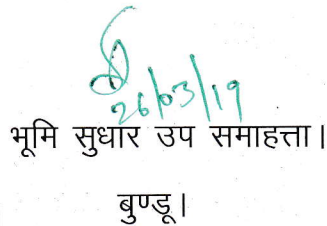 26/03/19
भूमि सुधार उप समाहत्ता।
बुण्डू।